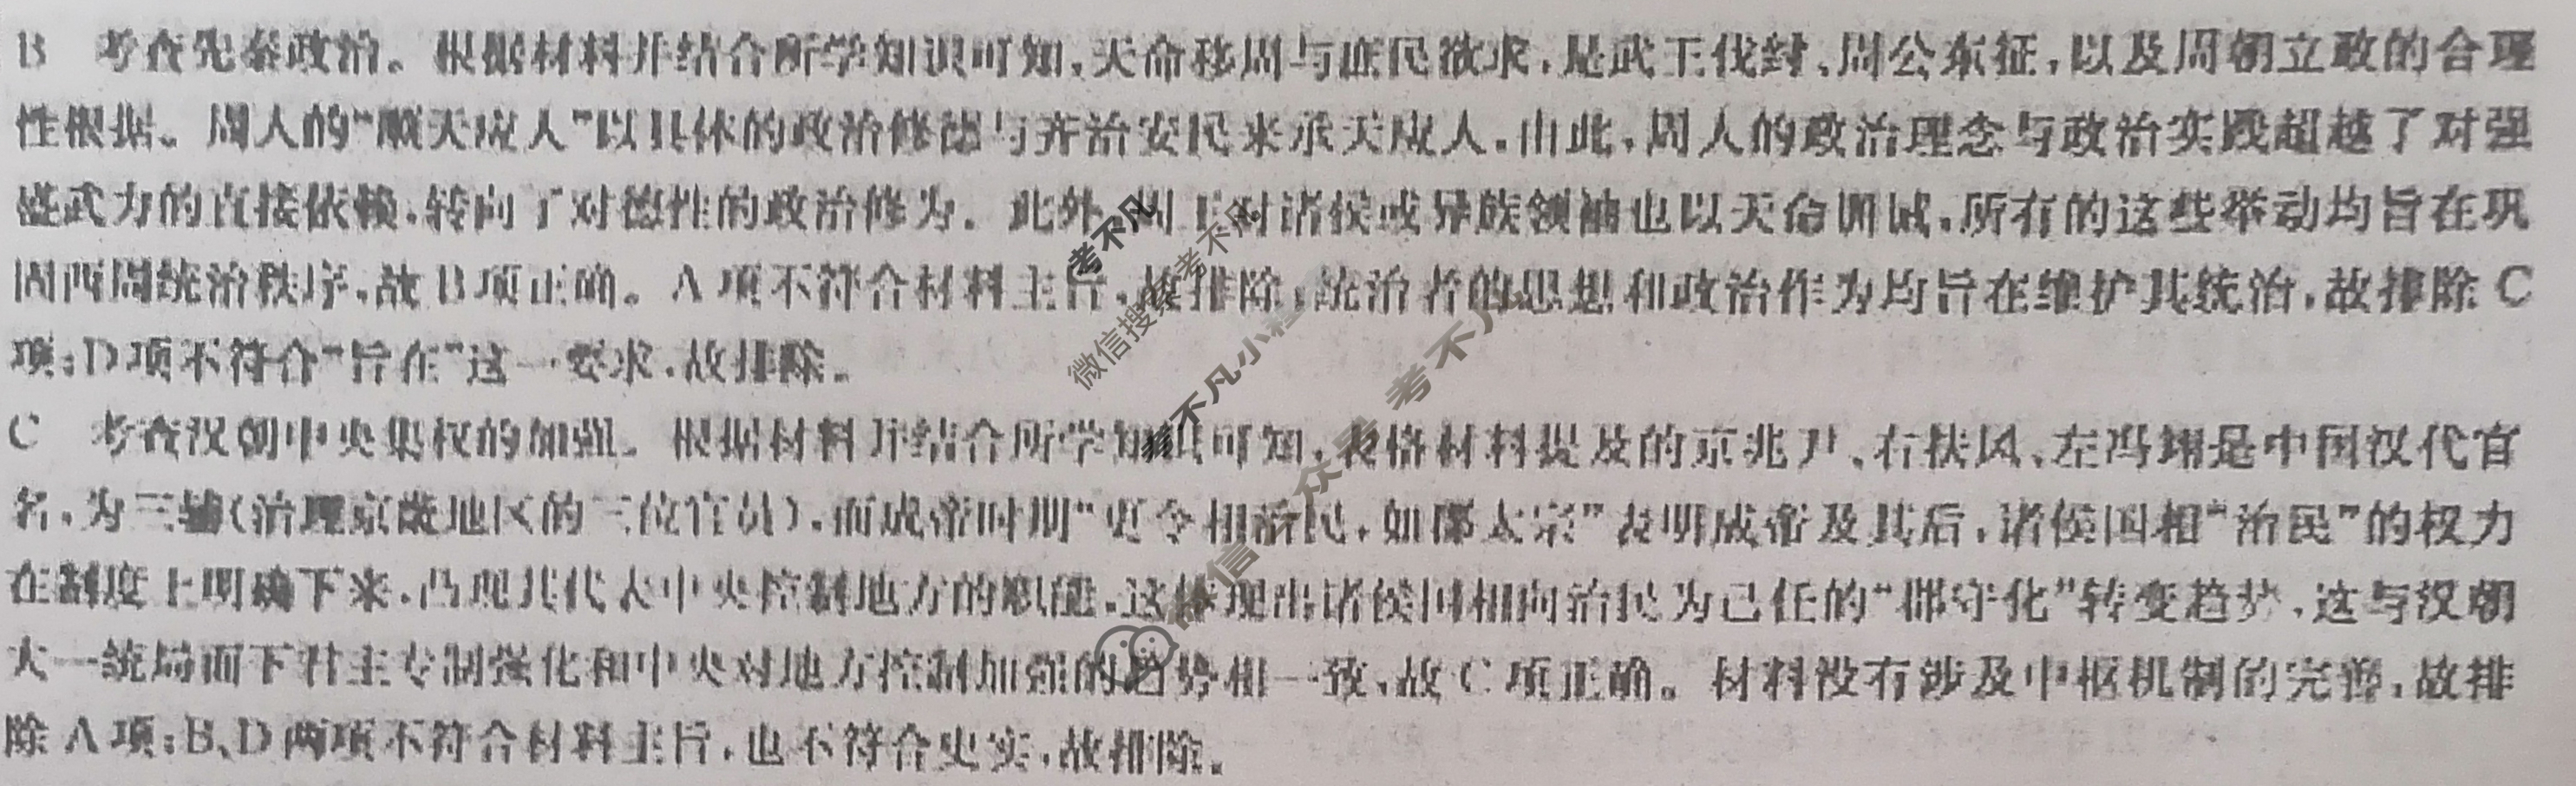 B 考查先秦政治。根据材料并结合所学知识可知,天命移周与庶民欲求,是武王伐纣、周公东征,以及周朝立政的合理
性根据。周人的“顺天应人”以具体的政治修德与齐治安民来承天应人。由此,周人的政治理念与政治实践超越了对强
盛武力的直接依赖,转向了对德性的政治修为。此外,周王对诸侯或异族领袖也以天命训诫,所有的这些举动均旨在巩
固西周统治秩序,故B项正确。A项不符合材料主旨,故排除;统治者的思想和政治作为均旨在维护其统治,故排除C
项;D项不符合“旨在”这一要求,故排除。
C 考查汉朝中央集权的加强。根据材料并结合所学知识可知,表格材料提及的京兆尹、右扶风、左冯翊是中国汉代官
名,为三辅(治理京畿地区的三位官员),而成帝时期“更令相治民,如郡太宗”表明成帝及其后,诸侯国相“治民”的权力
在制度上明确下来,凸现其代表中央控制地方的职能,这体现出诸侯国相向治民为己任的“郡守化”转变趋势,这与汉朝
大一统局面下君主专制强化和中央对地方控制加强的趋势相一致,故C项正确。材料没有涉及中枢机制的完善,故排
除A项;B、D两项不符合材料主旨,也不符合史实,故排除。
考不凡
微信搜索考不凡
考不凡小程
微信 众号 考不凡